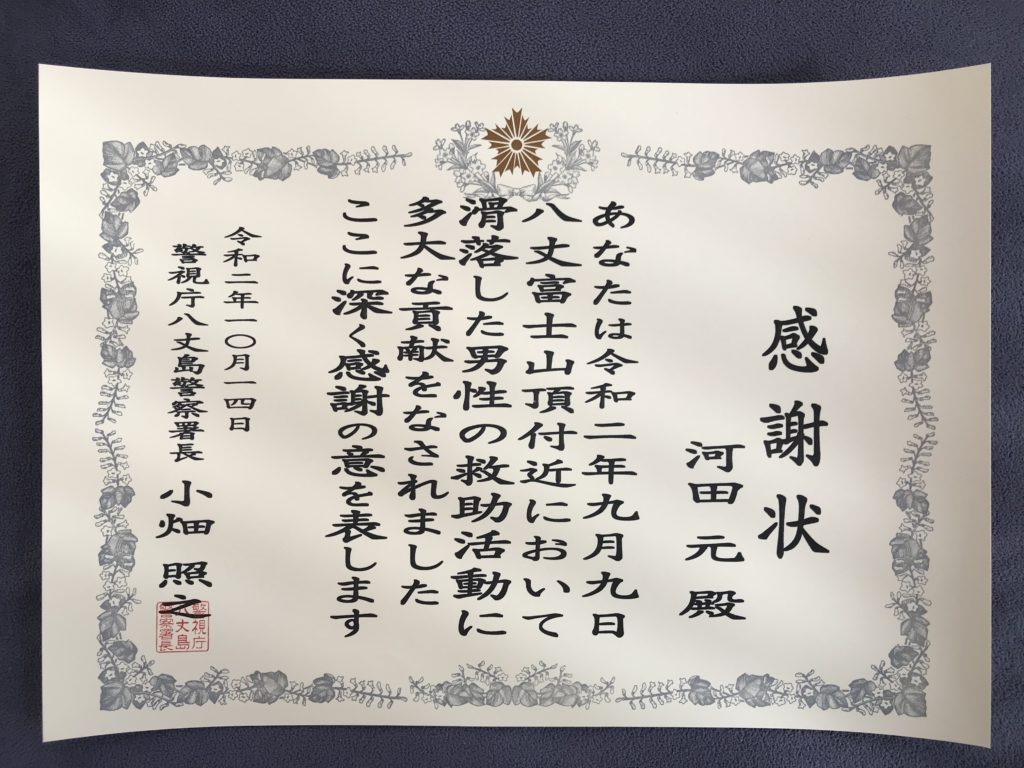 感謝状
河田元殿
あなたは令和二年九月九日
八丈富士山頂付近において
滑落した男性の救助活動に
多大な貢献をなされました
ここに深く感謝の意を表します
令和二年一〇月一四日
警視庁八丈島警察署長 小畑照之
警視庁
八丈島
警察署長